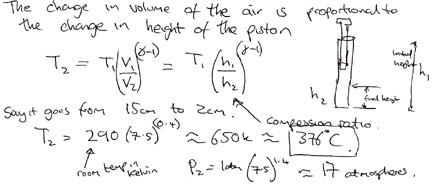 The change in volume of the air is proportional to
the change in height of the piston
T₂ = T₁(V₁/V₂)^(γ-1) = T₁(h₁/h₂)^(γ-1)
initial height h₁
h₂
final height
compression ratio.
Say it goes from 15cm to 2cm.
T₂ = 290 (7.5)^(0.4) ≈ 650k ≈ 376°C.
room temp in kelvin
P₂ = 1atm (7.5)^1.4 ≈ 17 atmospheres.